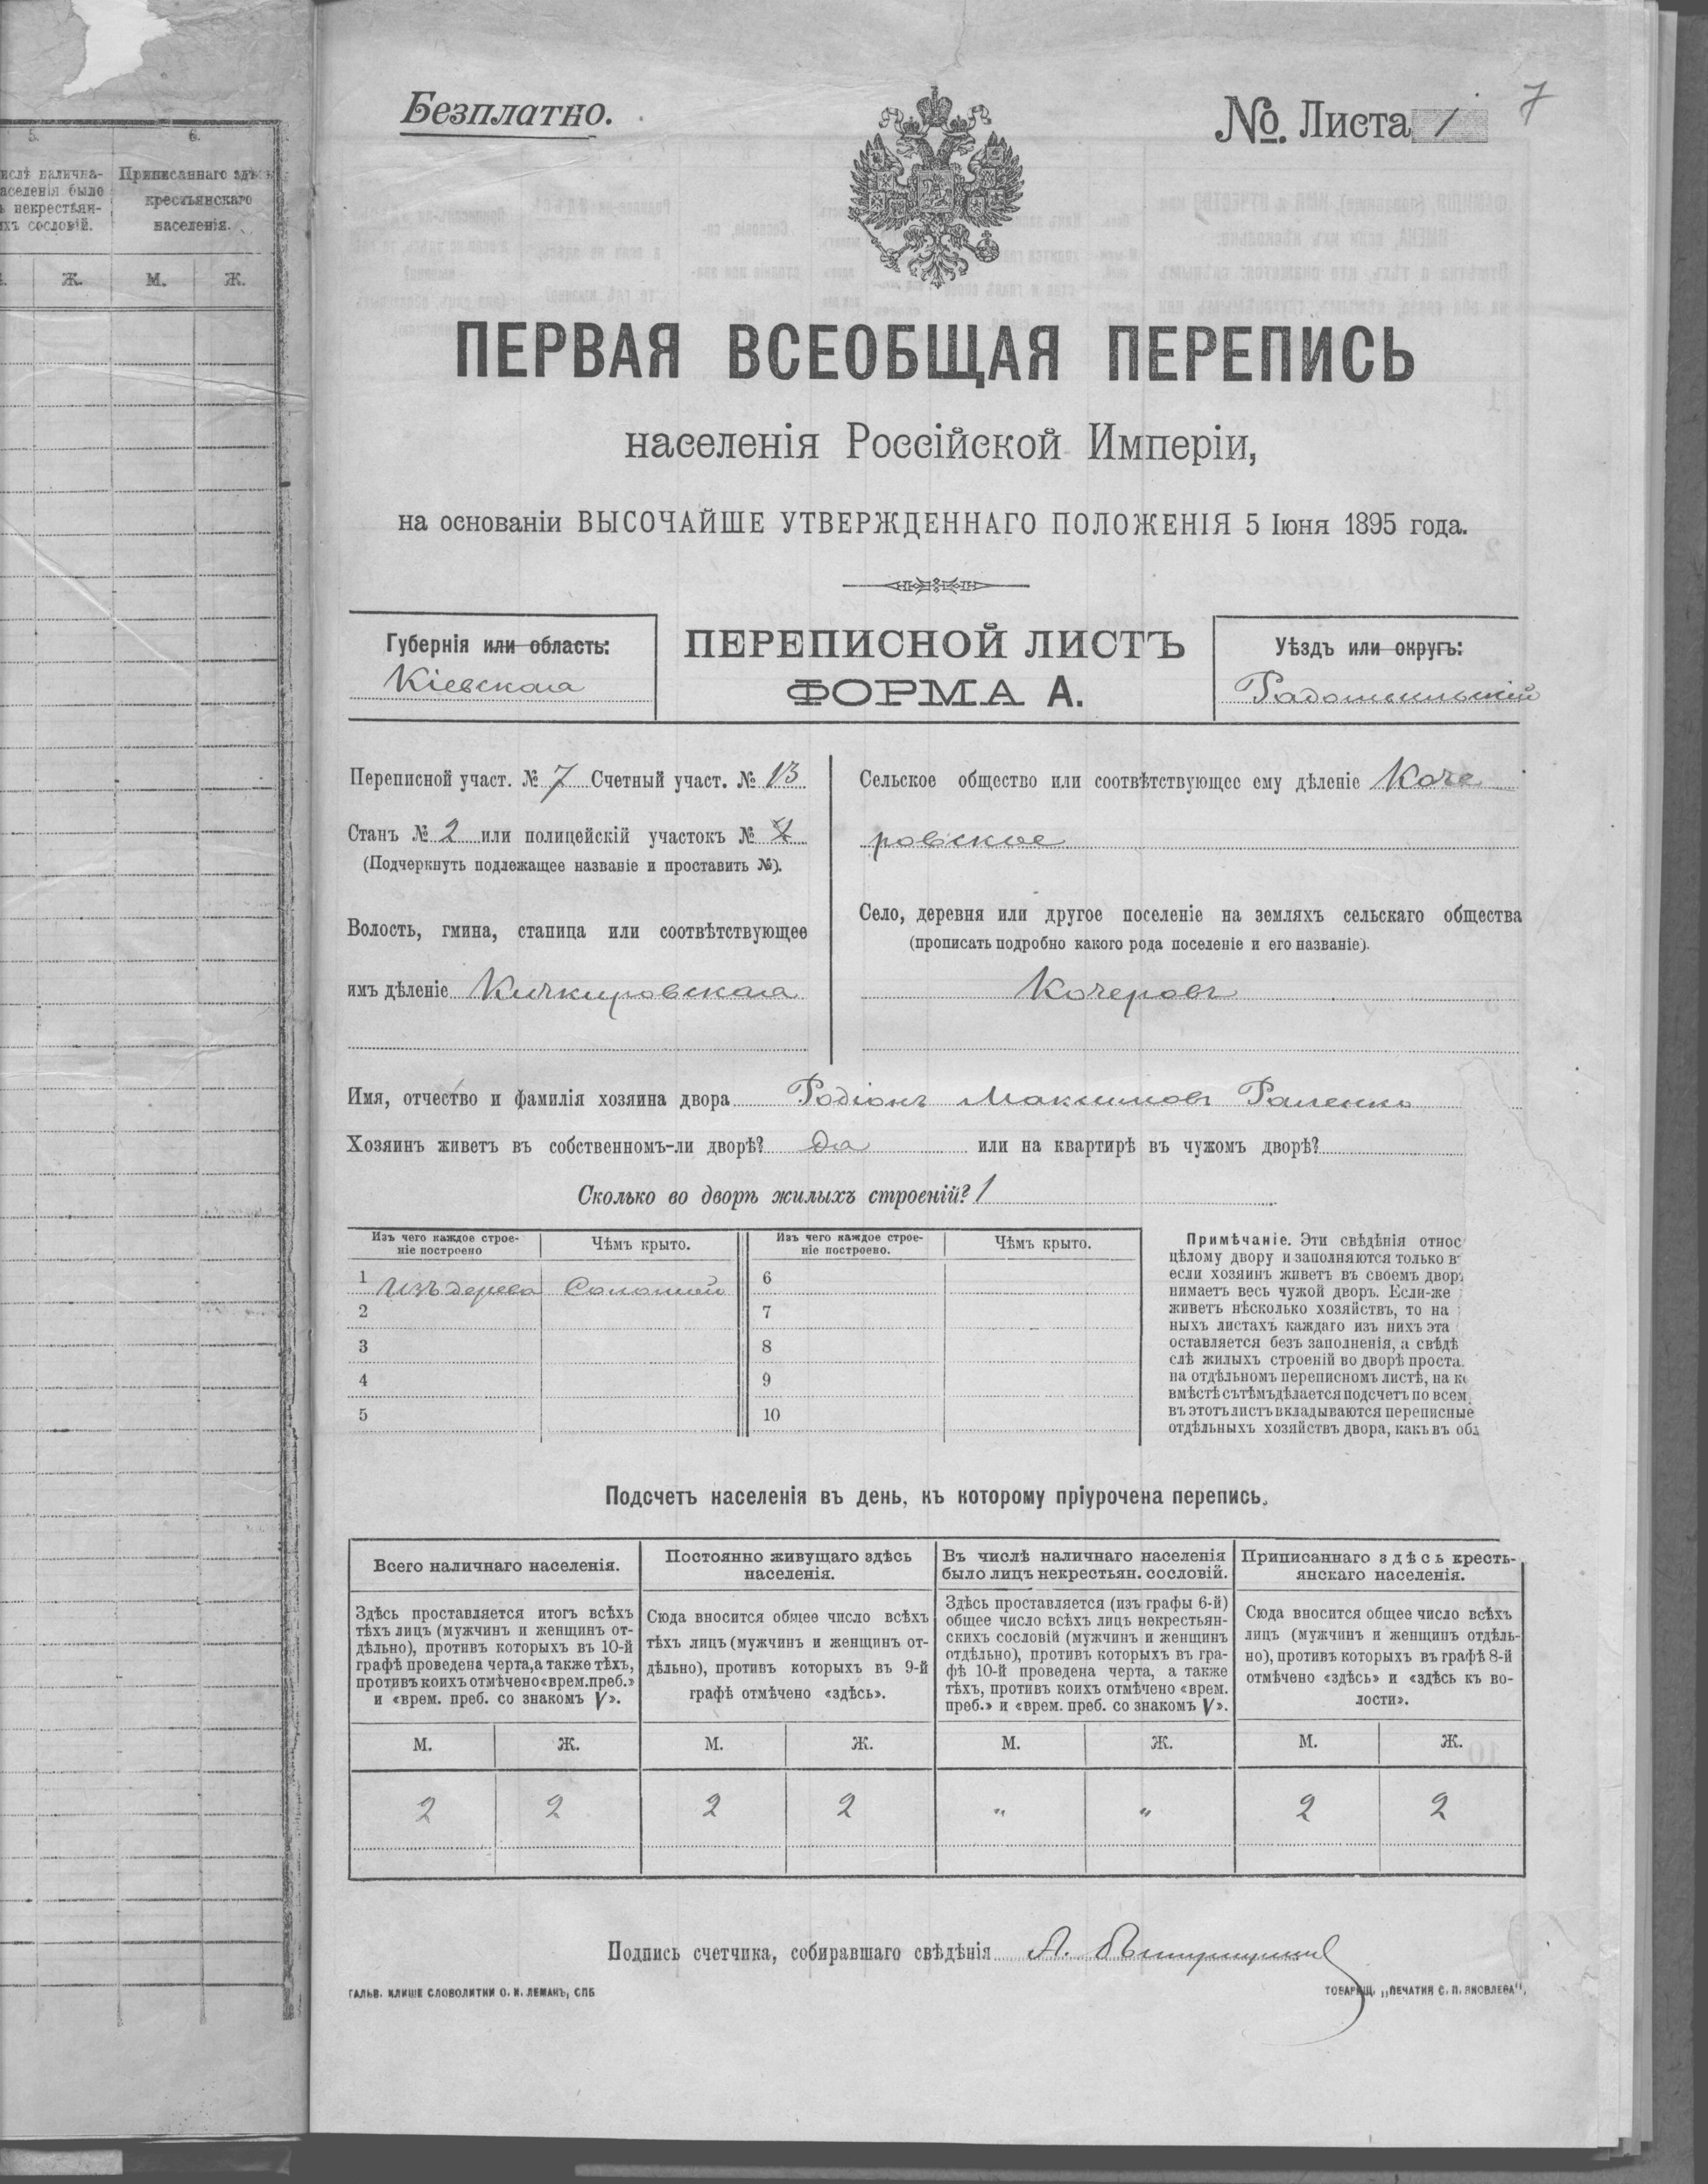 5.
6.
ислѣ налична-
аселенія было
ъ некрестьян-
ихъ сословій.
Приписаннаго здѣсь
крестьянскаго
населенія.
Ж.
М.
Ж.
Безплатно.
№. Листа 1
7
ПЕРВАЯ ВСЕОБЩАЯ ПЕРЕПИСЬ
населенія Россійской Имперіи,
на основаніи ВЫСОЧАЙШЕ УТВЕРЖДЕННАГО ПОЛОЖЕНІЯ 5 Іюня 1895 года.
Губернія или область:
Кіевская
ПЕРЕПИСНОЙ ЛИСТЪ
ФОРМА А.
Уѣздъ или округъ:
Радомысльскій
Переписной участ. № 7 Счетный участ. № 13
Станъ № 2 или полицейскій участокъ №
(Подчеркнуть подлежащее названіе и проставить №).
Волость, гмина, станица или соотвѣтствующее
имъ дѣленіе Кичкировская
Сельское общество или соотвѣтствующее ему дѣленіе Коче
ровское
Село, деревня или другое поселеніе на земляхъ сельскаго общества
(прописать подробно какого рода поселеніе и его названіе).
Кочеровъ
Имя, отчество и фамилія хозяина двора Родіонъ Максимовъ
Хозяинъ живетъ въ собственномъ-ли дворѣ? да или на квартирѣ въ чужомъ дворѣ?
Сколько во дворѣ жилыхъ строеній? 1
Изъ чего каждое строе-
ніе построено
Чѣмъ крыто.
Изъ чего каждое строе-
ніе построено.
Чѣмъ крыто.
1 Изъ дерева Соломой
2
3
4
5
6
7
8
9
10
Примѣчаніе. Эти свѣдѣнія относ
цѣлому двору и заполняются только в
если хозяинъ живетъ въ своемъ двор
нимаетъ весь чужой дворъ. Если-же
живетъ нѣсколько хозяйствъ, то на
ныхъ листахъ каждаго изъ нихъ эта
оставляется безъ заполненія, а свѣдѣ
слѣ жилыхъ строеній во дворѣ проста
на отдѣльномъ переписномъ листѣ, на к
вмѣстѣ съ тѣмъ дѣлается подсчетъ по всем
въ этотъ листъ вкладываются переписные
отдѣльныхъ хозяйствъ двора, какъ въ об
Подсчетъ населенія въ день, къ которому пріурочена перепись.
Всего наличнаго населенія.
Постоянно живущаго здѣсь
населенія.
Въ числѣ наличнаго населенія
было лицъ некрестьян. сословій.
Приписаннаго здѣсь кресть-
янскаго населенія.
Здѣсь проставляется итогъ всѣхъ
тѣхъ лицъ (мужчинъ и женщинъ от-
дѣльно), противъ которыхъ въ 10-й
графѣ проведена черта, а также тѣхъ,
противъ коихъ отмѣчено «врем. преб.»
и «врем. преб. со знакомъ V».
Сюда вносится общее число всѣхъ
тѣхъ лицъ (мужчинъ и женщинъ от-
дѣльно), противъ которыхъ въ 9-й
графѣ отмѣчено «здѣсь».
Здѣсь проставляется (изъ графы 6-й)
общее число всѣхъ лицъ некрестьян-
скихъ сословій (мужчинъ и женщинъ
отдѣльно), противъ которыхъ въ гра-
фѣ 10-й проведена черта, а также
тѣхъ, противъ коихъ отмѣчено «врем.
преб.» и «врем. преб. со знакомъ V».
Сюда вносится общее число всѣхъ
лицъ (мужчинъ и женщинъ отдѣль-
но), противъ которыхъ въ графѣ 8-й
отмѣчено «здѣсь» и «здѣсь къ во-
лости».
М. Ж. М. Ж. М. Ж. М. Ж.
2 2 2 2 " " 2 2
Подпись счетчика, собиравшаго свѣдѣнія А.
ГАЛЬВ. КЛИШЕ СЛОВОЛИТНИ О. И. ЛЕМАНЪ, СПБ
ТОВАРИЩ. „ПЕЧАТНЯ С. П. ЯКОВЛЕВА".